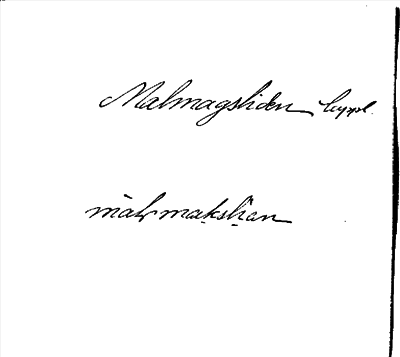 Malmagsliden
màlmakslian